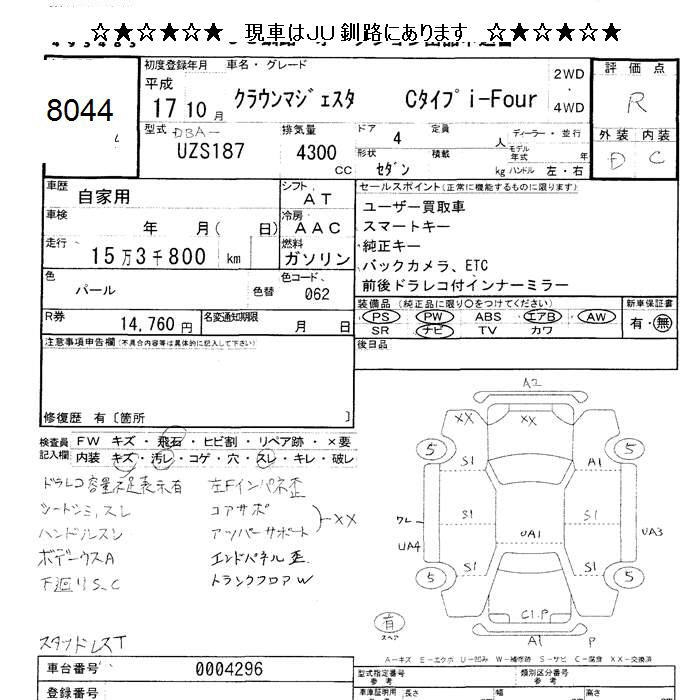 ☆★☆★☆★☆ 現車はJU釧路にあります ☆★☆★☆★☆
8044
初度登録年月 車名・グレード
平成
17 10月 クラウンマジェスタ Cタイプ i-Four
2WD
・
4WD
評価点
R
外装 内装
D C
型式 DBA-
UZS187
排気量
4300 CC
ドア 4 定員 人
ディーラー・並行
モデル年式 年
形状 積載
セダン kg ハンドル 左・右
車歴 自家用
シフト AT
車検 年 月( 日)
冷房 AAC
走行 15万3千800 km
燃料 ガソリン
色 パール 色替
色コード、 062
R券 14,760円
名変通知期限 月 日
セールスポイント(正常に機能するものに限ります)
ユーザー買取車
スマートキー
純正キー
バックカメラ、ETC
前後ドラレコ付インナーミラー
装備品(純正品に限り○をつけてください)
PS PW ABS エアB AW
SR ナビ TV カワ
新車保証書
有・無
後日品
注意事項申告欄(不具合内容等は具体的に記入して下さい)
修復歴 有〔箇所 〕
検査員記入欄
FW キズ・飛石・ヒビ割・リペア跡・×要
内装 キズ・汚レ・コゲ・穴・スレ・キレ・破レ
ドラレコ容量不足表示有
シートシミ,スレ
ハンドルスレ
ボデークウスA
下廻りS、C
左Fインパネ歪
コアサポ
アッパーサポート
XX
エンドパネル歪
トランクフロアW
スタッドレスT
A2
XX XX
5 5
S1 A1
S1 S1
ワレ
UA1
UA4 UA3
S1 S1
5 5
C1.P
A1 P
有
スペア
A-キズ E-エクボ U-凹み W-補修跡 S-サビ C-腐食 XX-交換済
車台番号 0004296
登録番号
型式指定番号 参考
類別区分番号 参考
車庫証明用 参考 長さ 幅 高さ